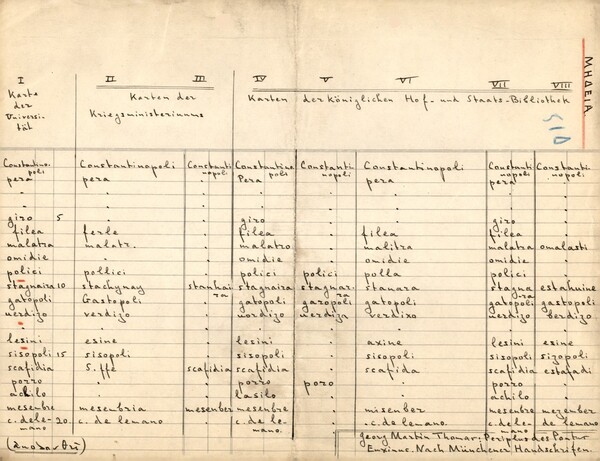 ΜΗΔΕΙΑ.
515
I II III IV V VI VII VIII
Karte der Universität
Karten der Kriegsministeriums
Karten der königlichen Hof- und Staats-Bibliothek
Constantinopoli Constantinopoli Constantinopoli Constantinopoli Constantinopoli Constantinopoli Constantinopoli Constantinopoli
pera pera . Pera . pera pera .
. . . . . . . .
. . . . . . . .
giro 5 . . giro . . giro .
filea ferle . filea . filea filea .
malatra malatr. . malatro . malitra malatra omalasti
omidie . . omidie . omidie omidie .
polici pollici . polici polici polla polici .
stagnaira 10 stachynay stanhaira stagnaira stagnarza stanara stagnara estahuine
gatopoli Gastopoli . gatopoli garopoli gatopoli gatopoli gastopoli
uerdizo verdizo . uerdizo uerdiza verdixo uerdizo berdizo
lesini esine . lesini . axine lesini esine
sisopoli 15 sisopoli . sisopoli . sisopoli sisopoli sizopoli
scafidia S. ffe scafidia scafidia . scafida scafidia estafadi
porro . . porro poro . porro .
achilo . . lasilo . . achilo .
mesenbre mesenbria mesenber mesenbre . misember mesenbre mezenber
c. de lemano 20. c. de lemano . c. de lemano. . c. de lemano c. de lemano de lemano
Georg Martin Thomas; Periplus des Pontus Euxinus. Nach Münchener Handschriften.